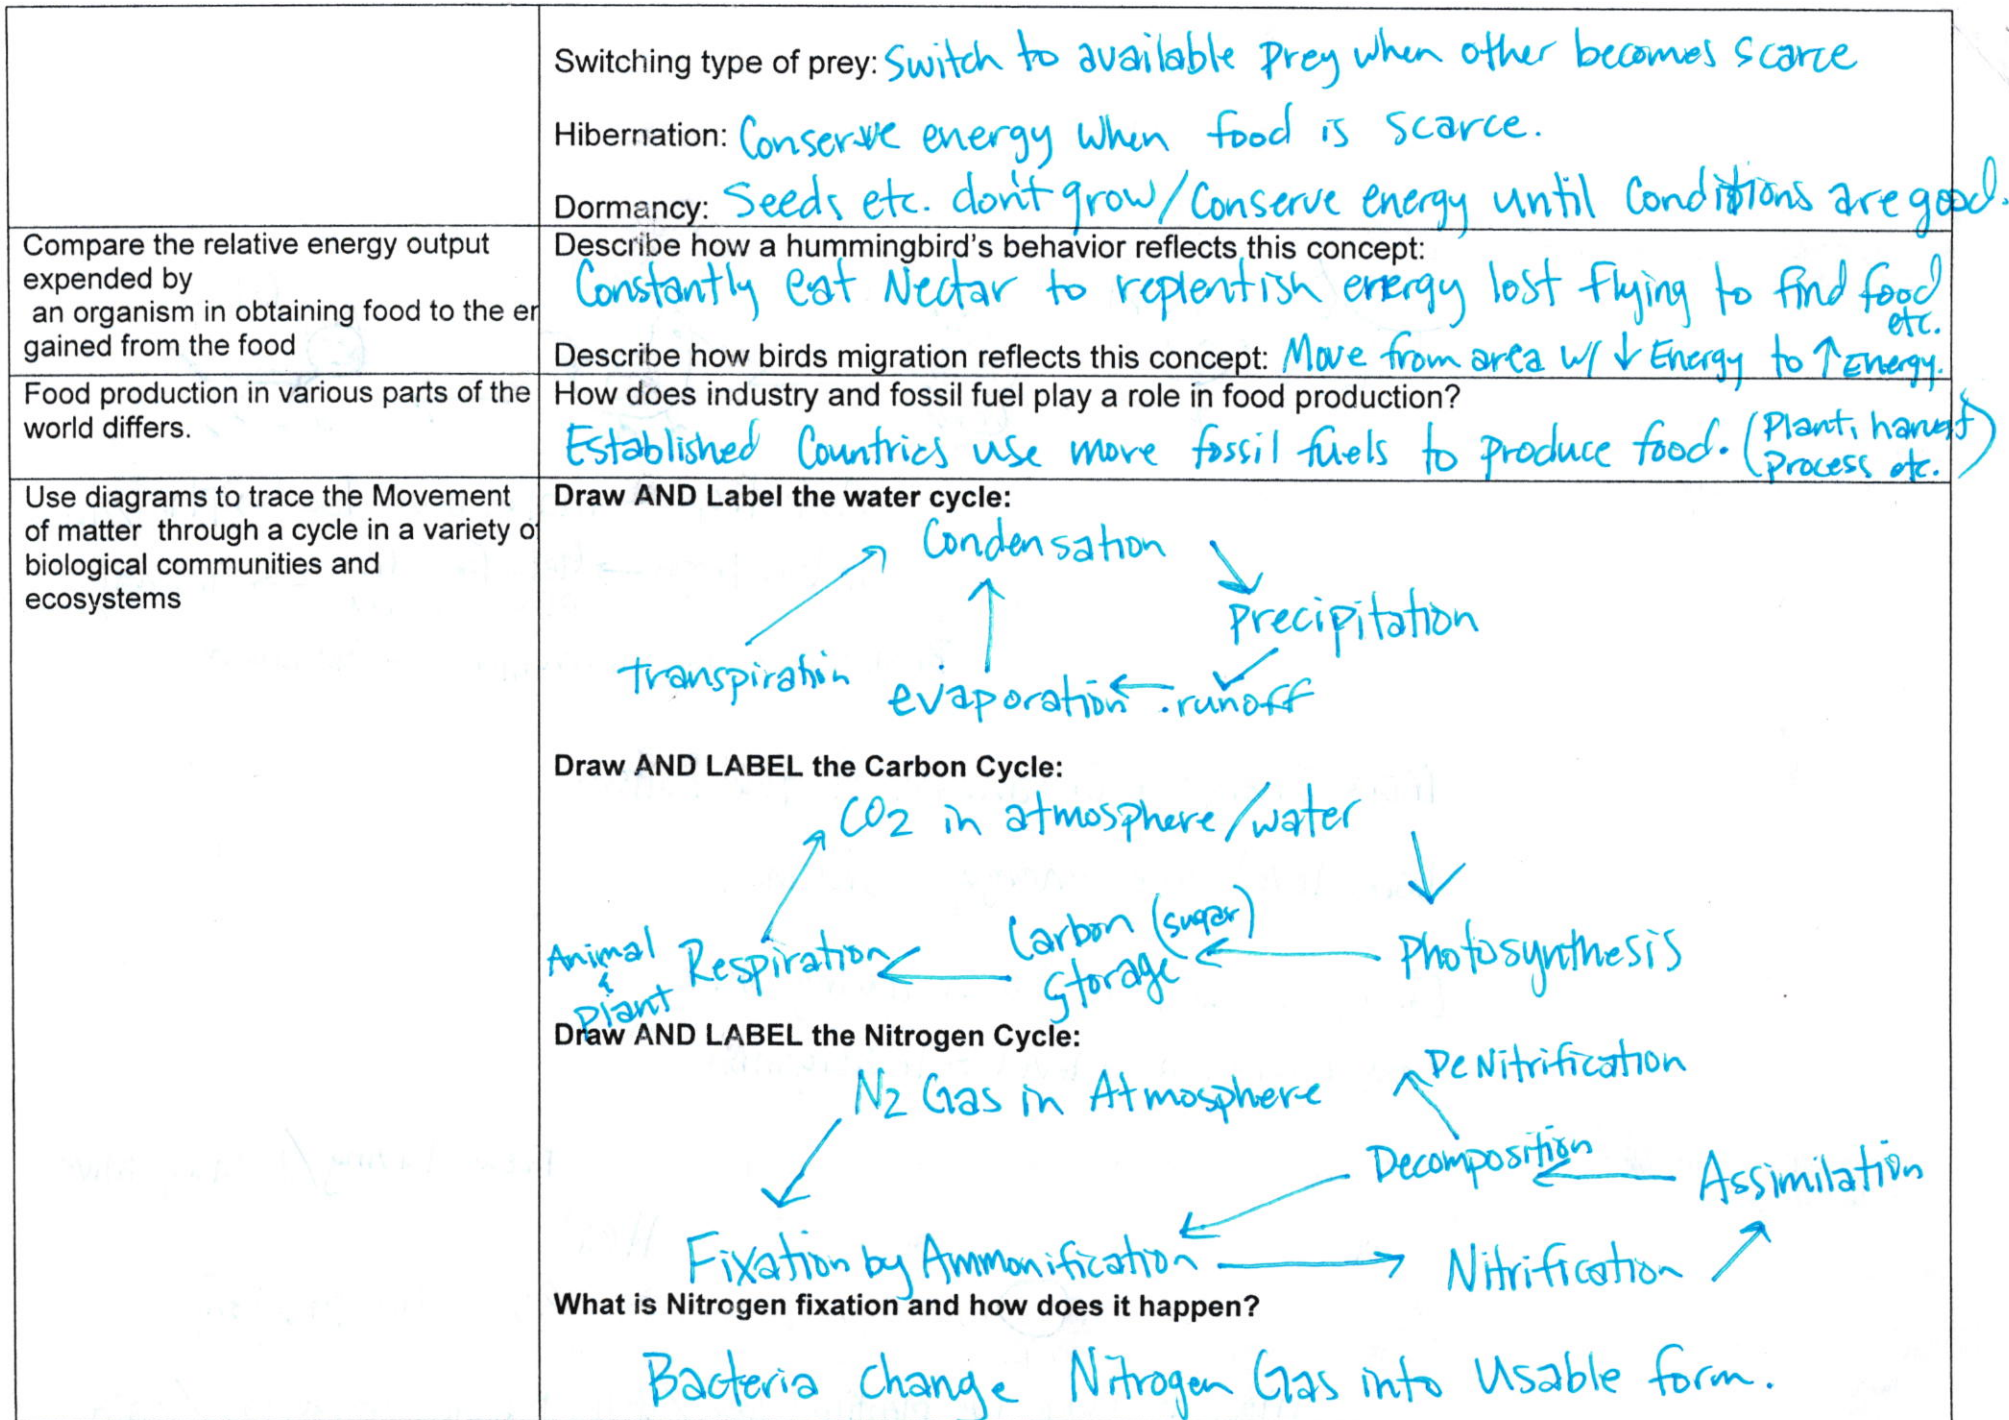 Switching type of prey: Switch to available prey when other becomes scarce
Hibernation: Conserve energy when food is scarce.
Dormancy: Seeds etc. don't grow/Conserve energy until Conditions are good.
Compare the relative energy output
expended by
an organism in obtaining food to the er
gained from the food
Describe how a hummingbird's behavior reflects this concept:
Constantly eat Nectar to replentish energy lost flying to find food
etc.
Describe how birds migration reflects this concept: Move from area w/ ↓ Energy to ↑ Energy.
Food production in various parts of the
world differs.
How does industry and fossil fuel play a role in food production?
Established Countries use more fossil fuels to produce food. (Plant, harvest
Process etc.)
Use diagrams to trace the Movement
of matter through a cycle in a variety o
biological communities and
ecosystems
Draw AND Label the water cycle:
Condensation
Precipitation
transpiration
evaporation
runoff
Draw AND LABEL the Carbon Cycle:
CO2 in atmosphere/water
Animal
&
Plant
Respiration
Carbon (sugar)
Storage
Photosynthesis
Draw AND LABEL the Nitrogen Cycle:
DeNitrification
N2 Gas in Atmosphere
Decomposition
Assimilation
Fixation by Ammonification
Nitrification
What is Nitrogen fixation and how does it happen?
Bacteria change Nitrogen Gas into Usable form.